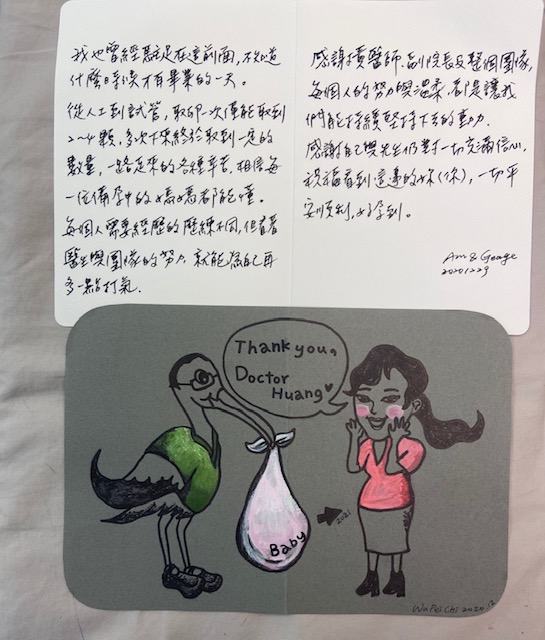 我也曾經駐足在這前面，不知道
什麼時候才有畢業的一天。
從人工到試管，取卵一次僅能取到
2~4顆，多次下來終於取到一定的
數量，一路走來的各種辛苦，相信每
一位備孕中的媽媽都能懂。
每個人需要經歷的歷練不同，但看著
醫生與團隊的努力，就能為自己再
多一點打氣.
感謝
醫師、副院長及整個團隊，
每個人的努力與溫柔，都是讓我
們能持續堅持下去的動力.
感謝自己與先生仍對一切充滿信心.
祝福看到這邊的妳(你)，一切平
安順利，好孕到。
Am & George
20201229
Thank you,
Doctor
Huang
Baby
2021
WuPeiChi 2020.12